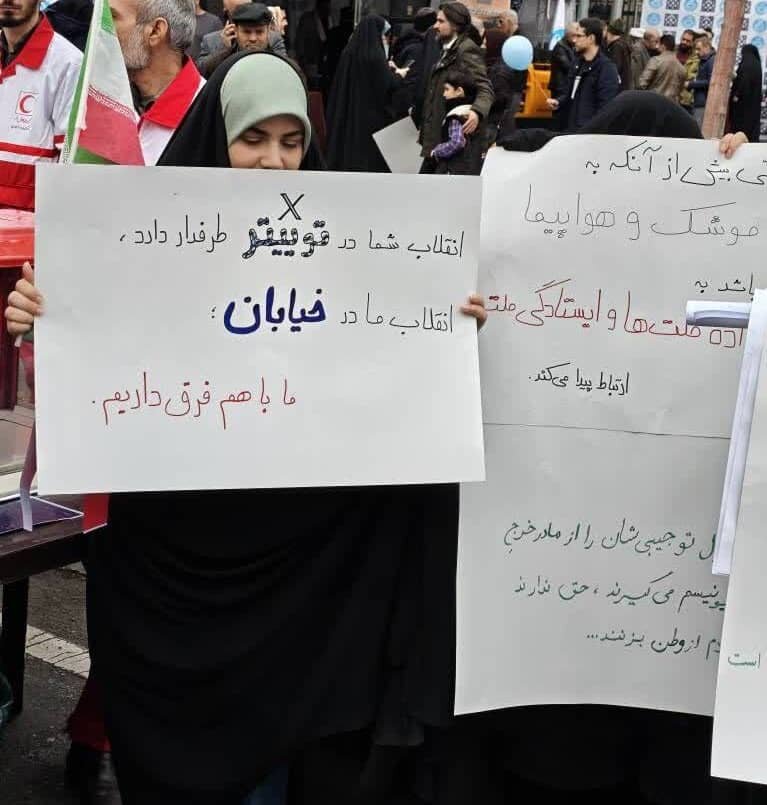 X
انقلاب شما در توییتر طرفدار دارد،
انقلاب ما در خیابان؛
ما با هم فرق داریم.
بیش از آنکه به
موشک و هواپیما
باشد به
ملت‌ها و ایستادگی ملت
ارتباط پیدا می‌کند.
توجیبی‌شان را از مادرخرجِ
می‌گیرند، حق ندارند
از وطن بزنند...
است